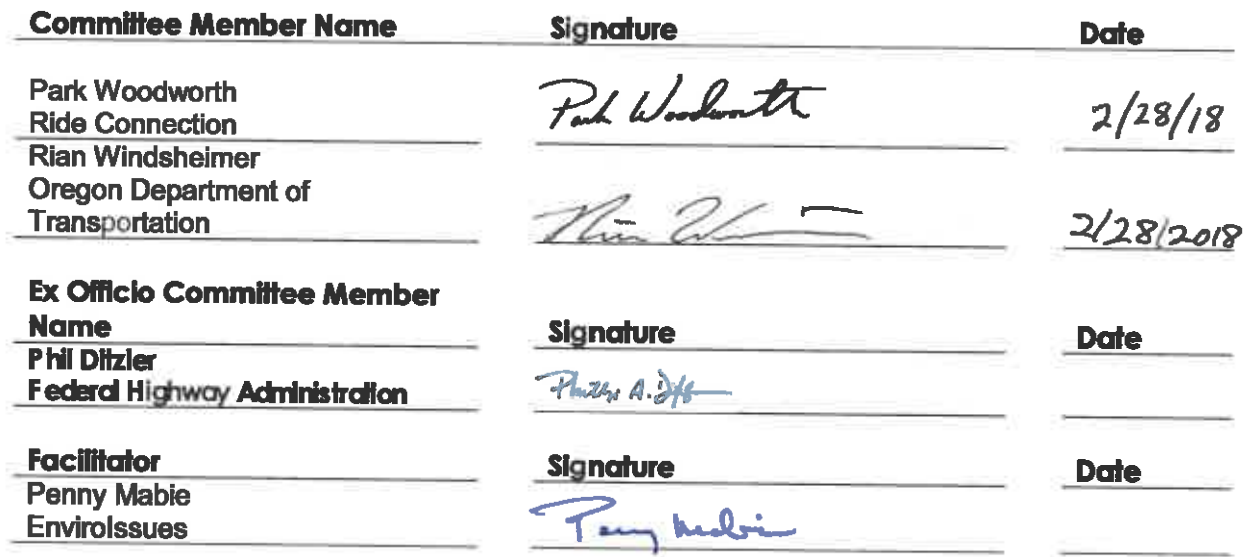 Committee Member Name Signature Date
Park Woodworth
Ride Connection Park Woodworth 2/28/18
Rian Windsheimer
Oregon Department of
Transportation 2/28/2018
Ex Officio Committee Member
Name Signature Date
Phil Ditzler
Federal Highway Administration
Facilitator Signature Date
Penny Mabie
EnviroIssues Penny Mabie